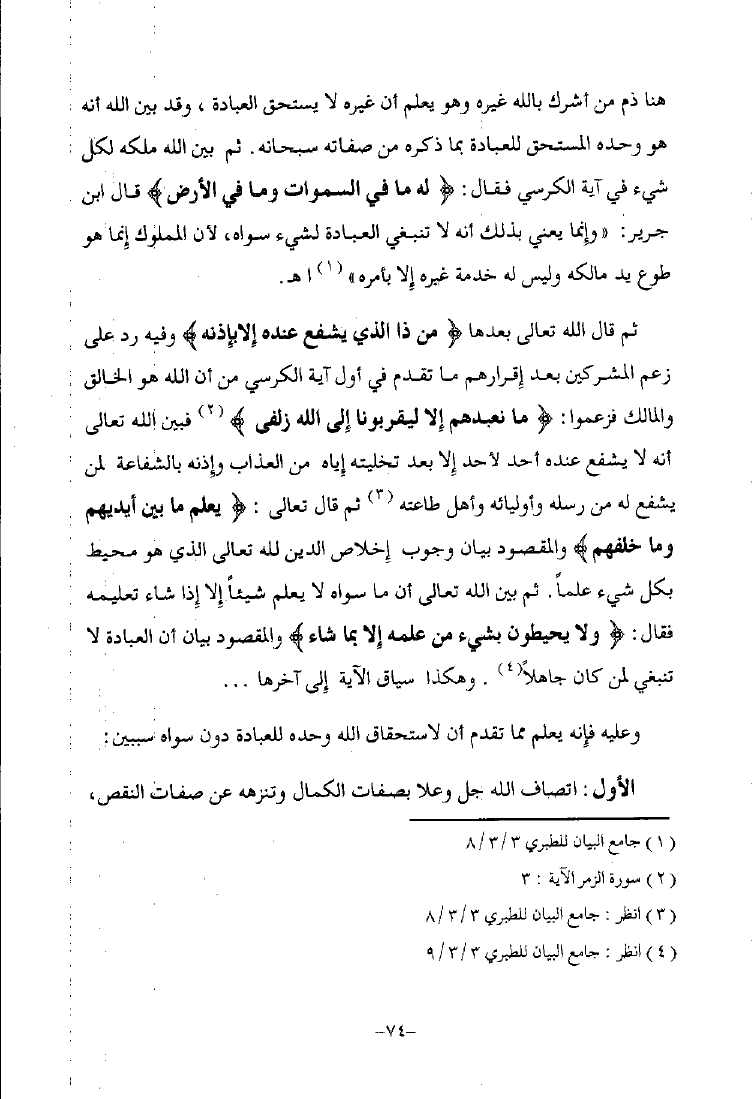 هنا ذم من أشرك بالله غيره وهو يعلم أن غيره لا يستحق العبادة ، وقد بين الله أنه
هو وحده المستحق للعبادة بما ذكره من صفاته سبحانه. ثم بين الله ملكه لكل
شيء في آية الكرسي فقال : ﴿ له ما في السموات وما في الأرض ﴾ قال ابن
جرير : « وإنما يعني بذلك أنه لا تنبغي العبادة لشيء سواه، لأن المملوك إنما هو
طوع يد مالكه وليس له خدمة غيره إلا بأمره » (١) ا هـ.
ثم قال الله تعالى بعدها ﴿ من ذا الذي يشفع عنده إلا بإذنه ﴾ وفيه رد على
زعم المشركين بعد إقرارهم ما تقدم في أول آية الكرسي من أن الله هو الخالق
والمالك فزعموا : ﴿ ما نعبدهم إلا ليقربونا إلى الله زلفى ﴾ (٢) فبين الله تعالى
أنه لا يشفع عنده أحد لأحد إلا بعد تخليته إياه من العذاب وإذنه بالشفاعة لمن
يشفع له من رسله وأوليائه وأهل طاعته (٣) ثم قال تعالى : ﴿ يعلم ما بين أيديهم
وما خلفهم ﴾ والمقصود بيان وجوب إخلاص الدين لله تعالى الذي هو محيط
بكل شيء علماً. ثم بين الله تعالى أن ما سواه لا يعلم شيئاً إلا إذا شاء تعليمه
فقال : ﴿ ولا يحيطون بشيء من علمه إلا بما شاء ﴾ والمقصود بيان أن العبادة لا
تنبغي لمن كان جاهلاً (٤) . وهكذا سياق الآية إلى آخرها ...
وعليه فإنه يعلم مما تقدم أن لاستحقاق الله وحده للعبادة دون سواه سببين :
الأول : اتصاف الله جل وعلا بصفات الكمال وتنزهه عن صفات النقص،
( ١ ) جامع البيان للطبري ٣ /٣ /٨
( ٢ ) سورة الزمر الآية : ٣
( ٣ ) انظر : جامع البيان للطبري ٣ /٣ /٨
( ٤ ) انظر : جامع البيان للطبري ٣ /٣ /٩
-٧٤-